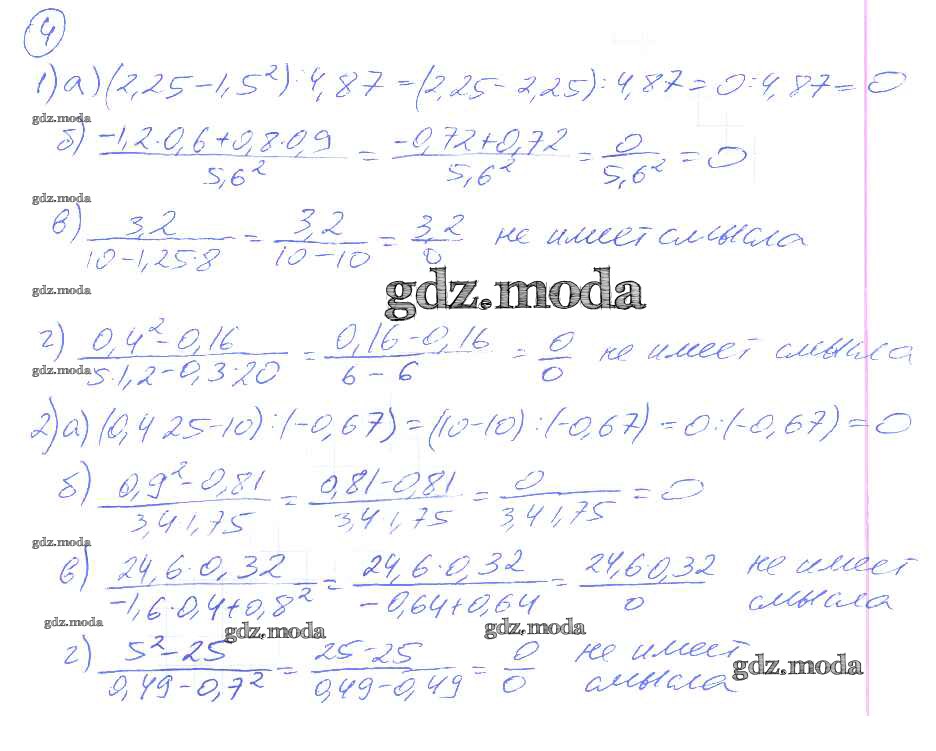 4
1) а) (2,25 – 1,5²) : 4,87 = (2,25 – 2,25) : 4,87 = 0 : 4,87 = 0
gdz.moda
б) (–1,2·0,6+0,8·0,9)/5,6² = (–0,72+0,72)/5,6² = 0/5,6² = 0
gdz.moda
в) 3,2/(10–1,25·8) = 3,2/(10–10) = 3,2/0 не имеет смысла
gdz.moda
gdz.moda
г) (0,4²–0,16)/(5·1,2–0,3·20) = (0,16–0,16)/(6–6) = 0/0 не имеет смысла
gdz.moda
2) а) (0,4 25–10) : (–0,67) = (10–10) : (–0,67) = 0 : (–0,67) = 0
б) (0,9²–0,81)/(3,4 1,75) = (0,81–0,81)/(3,4 1,75) = 0/(3,4 1,75) = 0
gdz.moda
в) (24,6·0,32)/(–1,6·0,4+0,8²) = (24,6·0,32)/(–0,64+0,64) = (24,6 0,32)/0 не имеет
смысла
gdz.moda
gdz.moda
gdz.moda
г) (5²–25)/(0,49–0,7²) = (25–25)/(0,49–0,49) = 0/0 не имеет
смысла
gdz.moda